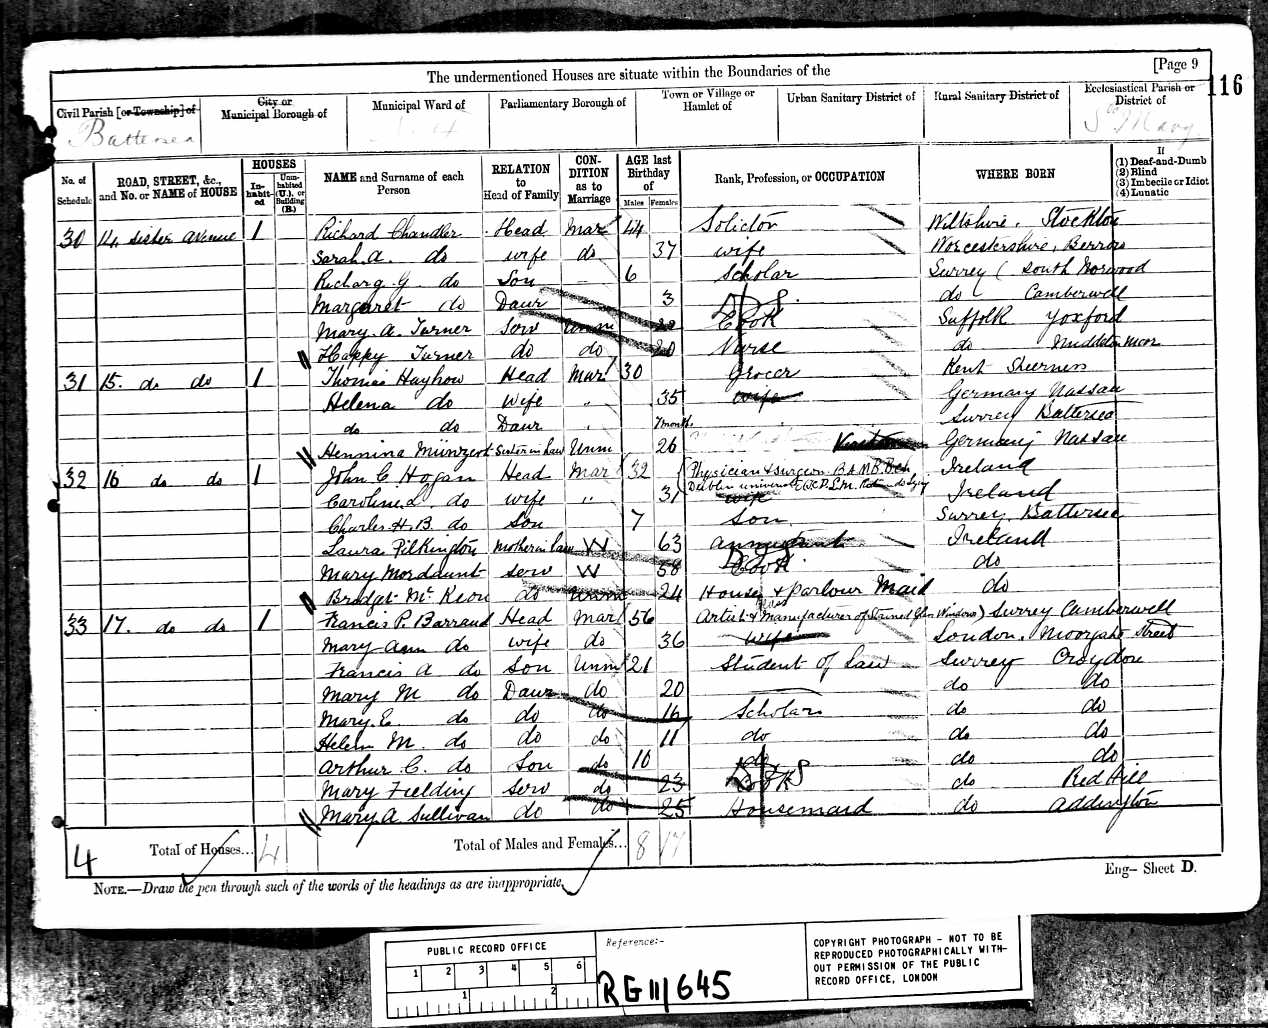 [Page 9
The undermentioned Houses are situate within the Boundaries of the
116
Civil Parish [or Township] of
City or Municipal Borough of
Municipal Ward of
Parliamentary Borough of
Town or Village or Hamlet of
Urban Sanitary District of
Rural Sanitary District of
Ecclesiastical Parish or District of
Battersea
St Mary
No. of Schedule
ROAD, STREET, &c., and No. or NAME of HOUSE
HOUSES
In-habit-ed
Unin-habited (U.), or Building (B.)
NAME and Surname of each Person
RELATION to Head of Family
CON-DITION as to Marriage
AGE last Birthday of
Males
Females
Rank, Profession, or OCCUPATION
WHERE BORN
If
(1) Deaf-and-Dumb
(2) Blind
(3) Imbecile or Idiot
(4) Lunatic
30 14 Sister Avenue 1 Richard Chandler Head Mar 44 Solicitor Wiltshire, Stockton
Sarah A. do wife do 37 wife Worcestershire, Berrow
Richard G. do Son 6 Scholar Surrey (South Norwood
Margaret do Daur 3 do Camberwell
Mary A. Turner Serv Unm Cook Suffolk Yoxford
Happy Turner do do 20 Nurse do
31 15. do do 1 Thomas Hayhow Head Mar 30 Grocer Kent Sheerness
Helena do Wife " 35 wife Germany Nassau
do do Daur " 7 months Surrey Battersea
Münzert Sister in Law Unm 26 Germany Nassau
32 16 do do 1 John C Hogan Head Mar 32 Physician & Surgeon B.A M.B. B.Ch Ireland
Dublin University
Caroline L. do wife " 31 wife Ireland
Charles H. B. do Son 7 Son Surrey Battersea
Laura Pilkington Mother in law W 63 annuitant Ireland
Mary Mordaunt Serv W 58 Cook do
Bridget McKeon do Unm 24 House & parlour Maid do
33 17. do do 1 Francis P. Barraud Head Mar 56 Artist & Manufacturer of Stained Glass Windows) Surrey Camberwell
Mary Ann do wife do 36 wife London, Moorgate Street
Francis A do Son Unm 21 Student of Law Surrey Croydon
Mary M do Daur do 20 do do
Mary E. do do do 16 Scholar do do
Helen M. do do do 11 do do do
Arthur C. do Son do 10 do do do
Mary Fielding Serv do 23 Cook do Red Hill
Mary A Sullivan do do 25 Housemaid do Addington
4 Total of Houses... 4 Total of Males and Females... 8 17
NOTE.—Draw the pen through such of the words of the headings as are inappropriate.
Eng— Sheet D.
PUBLIC RECORD OFFICE
1 2 3 4 5 6
1 2
Reference:-
RG 11/645
COPYRIGHT PHOTOGRAPH - NOT TO BE
REPRODUCED PHOTOGRAPHICALLY WITH-
OUT PERMISSION OF THE PUBLIC
RECORD OFFICE, LONDON